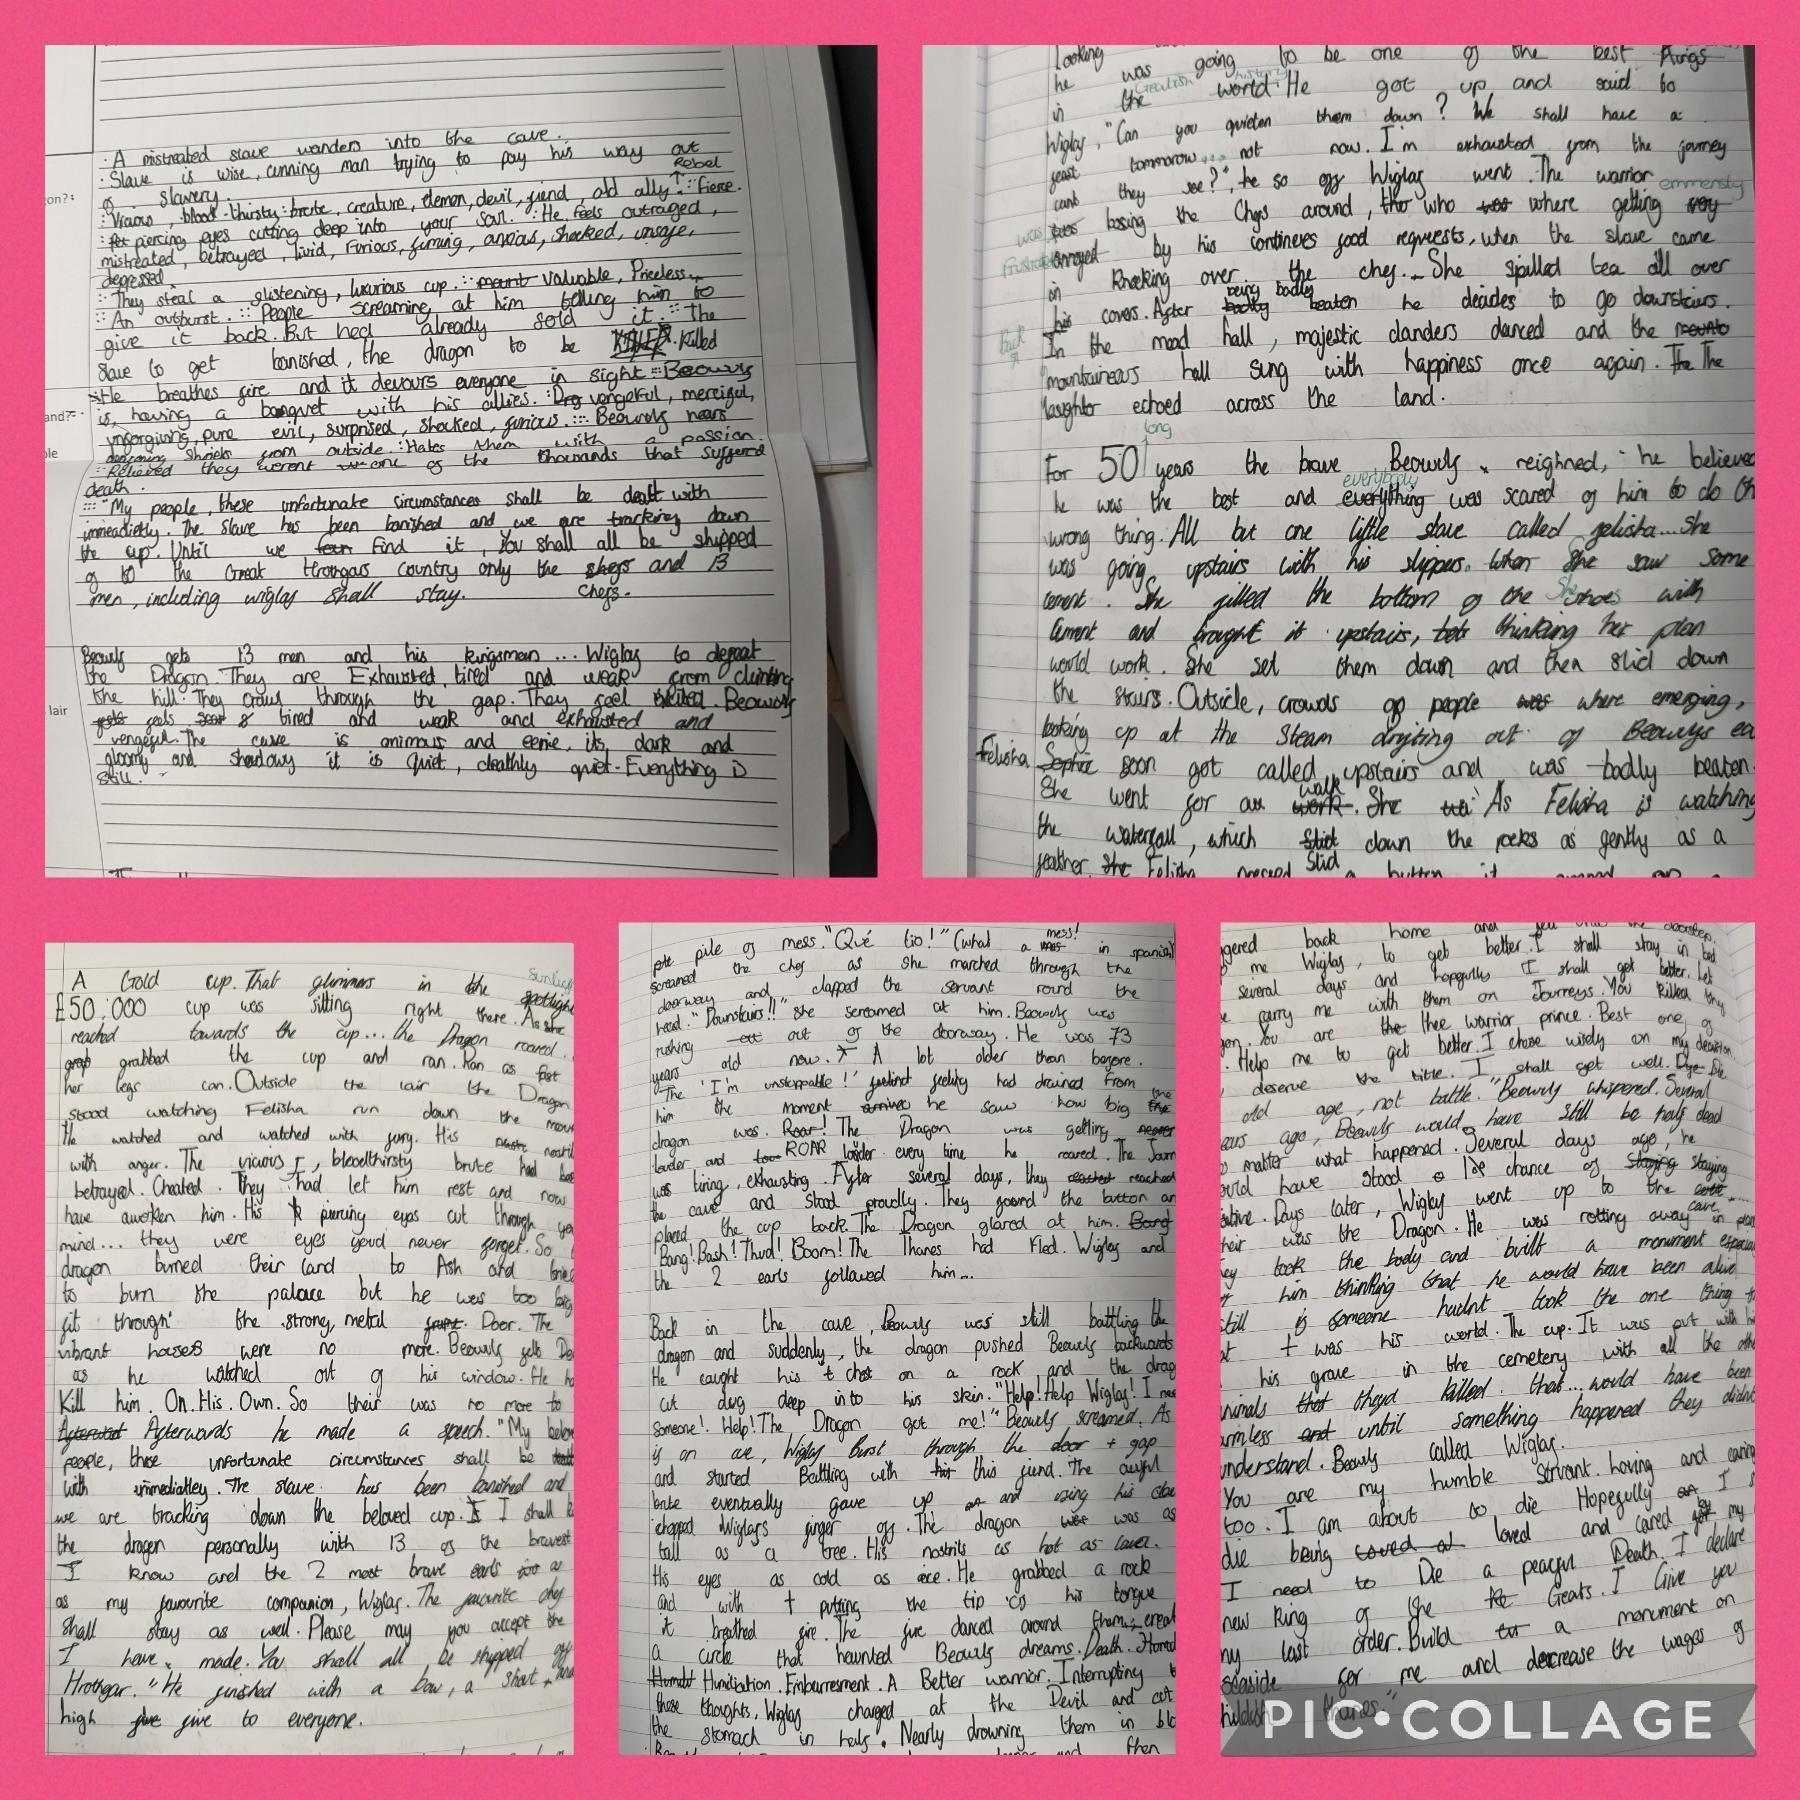 · A mistreated slave wanders into the cave.
· Slave is wise, cunning man trying to pay his way out
of slavery. Rebel
∴ Vicious, blood-thirsty brute, creature, demon, devil, fiend, old ally ∴ fierce.
∴ piercing eyes cutting deep into your soul. ∴ He feels outraged,
mistreated, betrayed, livid, furious, fuming, anxious, shocked, unsafe,
depressed
∴ They steal a glistening, luxurious cup. ∴ valuable, Priceless.
∴ An outburst. ∴ People screaming at him telling him to
give it back. But hed already sold it. ∴ The
slave to get banished, the dragon to be killed
He breathes fire and it devours everyone in sight ∴ Beowulf
is having a banquet with his allies. vengeful, merciful,
unforgiving, pure evil, surprised, shocked, furious. ∴ Beowulf hears
shrieks from outside. Hates them with a passion.
∴ Relieved they werent one of the thousands that suffered
death.
∴ "My people, these unfortunate circumstances shall be dealt with
immeadietly. The slave has been banished and we are tracking down
the cup. Until we find it, You shall all be shipped
of to the Great country only the chefs and 13
men, including wiglaf shall stay.
Beowulf gets 13 men and his kingsman ... Wiglaf to defeat
the Dragon. They are Exhausted, tired and weak from climbing
the hill. They crawl through the gap. They feel excited. Beowulf
feels tired and weak and exhausted and
vengeful. The cave is and eerie, its dark and
gloomy and shadowy it is Quiet, deathly quiet. Everything is
still.
Looking
he was going to be one of the best Kings
in the Geatish world history. He got up and said to
Wiglaf, "Can you quieten them down? We shall have a
feast tommorow... not now. I'm exhausted from the journey
cant they see?", he so off Wiglaf went. The warrior
was bossing the Chefs around, who where getting emmensly
frustrated by his continues food requests, when the slave came
in knocking over the chef. She spilled tea all over
his covers. After being badly beaten he decides to go downstairs.
back In the mead hall, majestic dancers danced and the
mountaineous hall sung with happiness once again. The
laughter echoed across the land.
For 50 long years the brave Beowulf reighned, he believed
he was the best and everybody was scared of him to do the
wrong thing. All but one little slave called felisha... She
was going upstairs with his slippers. She saw some
cement. She filled the bottom of the Shoes with
Cement and brought it upstairs, thinking her plan
would work. She set them down and then slid down
the stairs. Outside, crowds of people where emerging,
looking up at the Steam drifting out of Beowulfs ea
Felisha soon got called upstairs and was badly beaten.
She went for a walk. As Felisha is watching
the waterfall, which slid down the rocks as gently as a
feather. Felisha a button it
A Gold cup. That glimmers in the sunlight
£50,000 cup was sitting right there. As she
reached towards the cup... the Dragon roared...
grabbed the cup and ran. Ran as fast
her legs can. Outside the lair the Dragon
stood watching Felisha run down the
He watched and watched with fury. His
with anger. The vicious, bloodthirsty brute had
betrayed. Cheated. They had let him rest and now
have awoken him. His piercing eyes cut through
mind... they were eyes youd never forget. So
dragon burned their land to Ash and
to burn the palace but he was too big
fit through the strong, metal Door. The
vibrant houses were no more. Beowulf
as he watched out of his window. He
Kill him. On. His. Own. So their was no more to
Afterwards he made a speech. "My
people, these unfortunate circumstances shall be
with immediatley. The slave has been banished and
we are tracking down the beloved cup. I shall
the dragen personally with 13 of the bravest
I know and the 2 most brave earls
as my favourite companion, Wiglaf. The favorite chef
Shall stay as well. Please may you accept the
I have made. You shall all be shipped off
Hrothgar." He finished with a bow, a shout and
high five to everyone.
pile of mess. "Qué lío!" (what a mess! in spanish)
screamed the chef as she marched through the
doorway and clapped the servant round the
head. "Downstairs!!" she screamed at him. Beowulf was
rushing out of the doorway. He was 73
years old now. A lot older than before.
The 'I'm unstoppable!' feeling had drained from
him the moment he saw how big the
dragon was. The Dragon was getting
louder and ROAR louder every time he roared. The
was tiring, exhausting. After several days, they reached
the cave and stood proudly. They found the button
placed the cup back. The Dragon glared at him.
Bang! Bash! Thud! Boom! The Thanes had Fled. Wiglaf and
the 2 earls followed him...
Back in the cave, Beowulf was still battling the
dragon and suddenly, the dragon pushed Beowulf backwards
He caught his on a rock and the
cut dug deep into his skin. "Help! Help Wiglaf! I
Someone! Help! The Dragon got me!" Beowulf screamed. As
is on cue, Wiglaf burst through the gap
and started Battling with this fiend. The awful
brute eventually gave up and using his
chopped Wiglafs finger off. The dragon was as
tall as a tree. His nostrils as hot as lava.
His eyes as cold as ice. He grabbed a rock
and with putting the tip his tongue
it breathed fire. The fire danced around them,
a circle that haunted Beowulfs dreams. Death.
Humiliation. Embarresment. A Better warrior. Interrupting
these thoughts, Wiglaf charged at the Devil and cut
the stomach in half. Nearly drowning them in
back home and
me Wiglaf, to get better. I shall stay in bed
several days and hopefully I shall get better. Let
carry me with them on Journeys. You killed
You are thee warrior prince. Best one of
Help me to get better. I chose wisely on my decision
deserve the title. I shall get well. Die
old age, not battle." Beowulf whispered. Several
ago, Beowulf would have still be half dead
matter what happened. Several days ago, he
have stood a 1% chance of staying
Days later, Wiglaf went up to the cave...
was the Dragon. He was rotting away in
took the body and built a monument
him thinking that he would have been alive
still if someone hadnt took the one thing
was his world. The cup. It was put with
his grave in the cemetery with all the
theyd killed. that... would have been
until something happened they didnt
understand. Beowulf called Wiglaf.
You are my humble Servant. Loving and caring
too. I am about to die Hopefully I
die being loved and cared by my
I need to Die a peacful Death. I declare
new King of the Geats. I Give you
my last order. Build a monument on
seaside for me and decrease the wages of
thanes."
PIC•COLLAGE